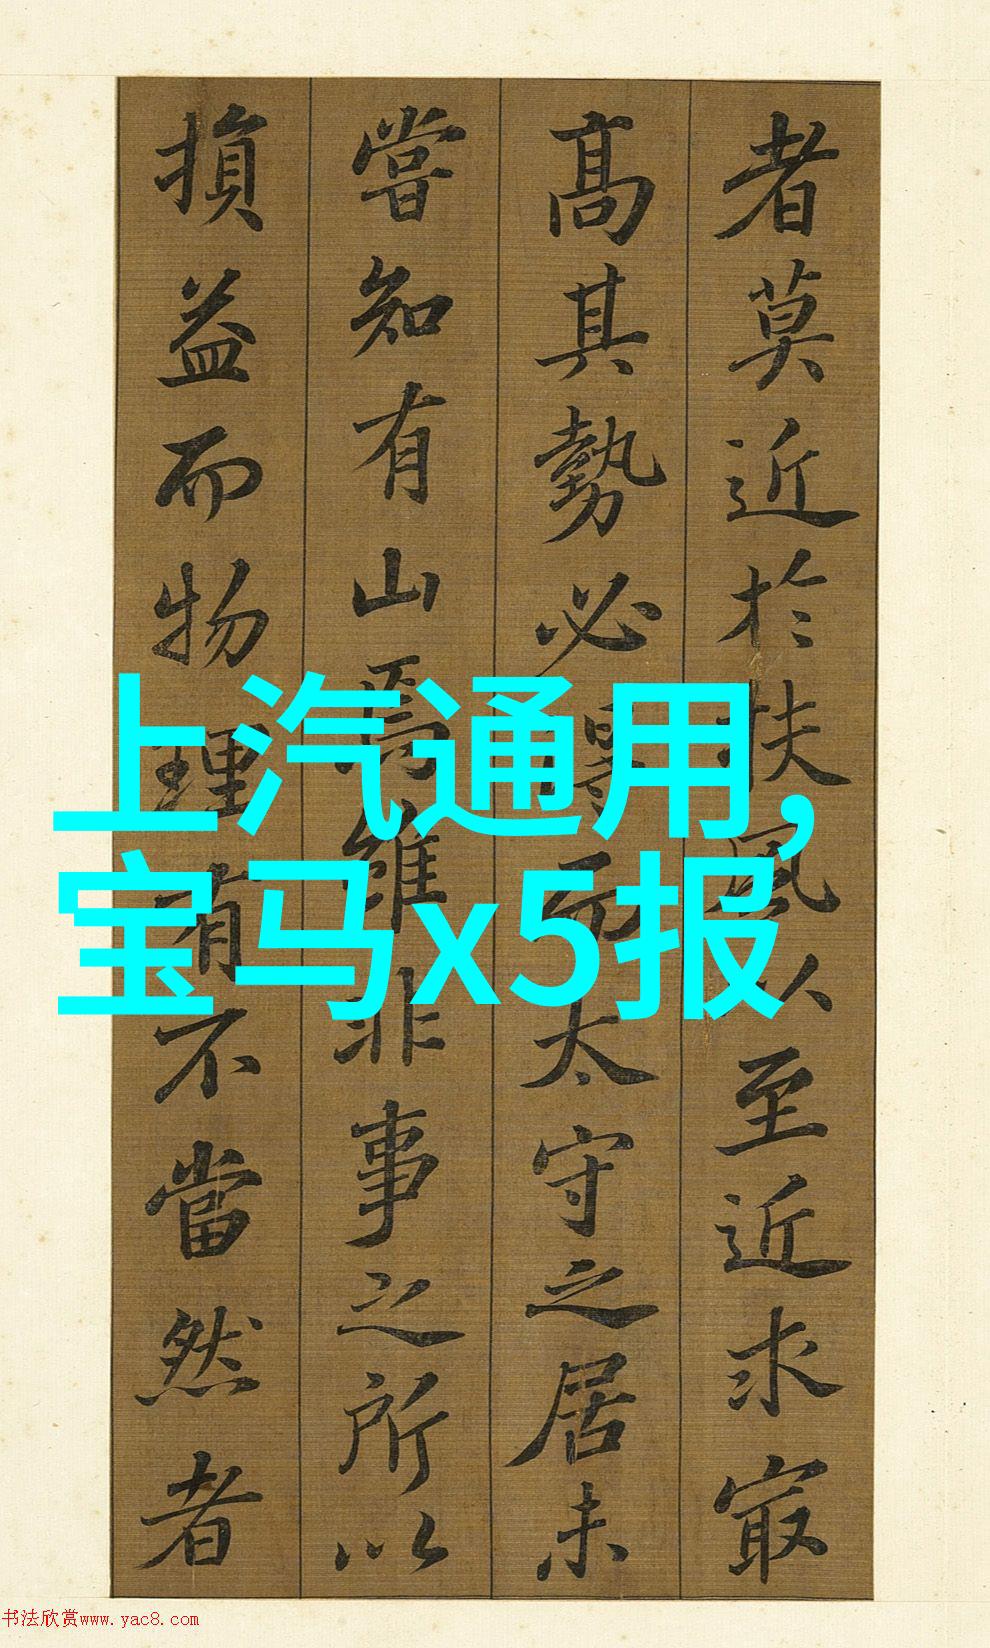 者莫近於扶風以至近求㝡
髙其勢必得而太守之居未
嘗知有山焉維非事之所以
損益而物理有不當然者
上汽通用，
宝马x5报
书法欣赏www.yac8.com